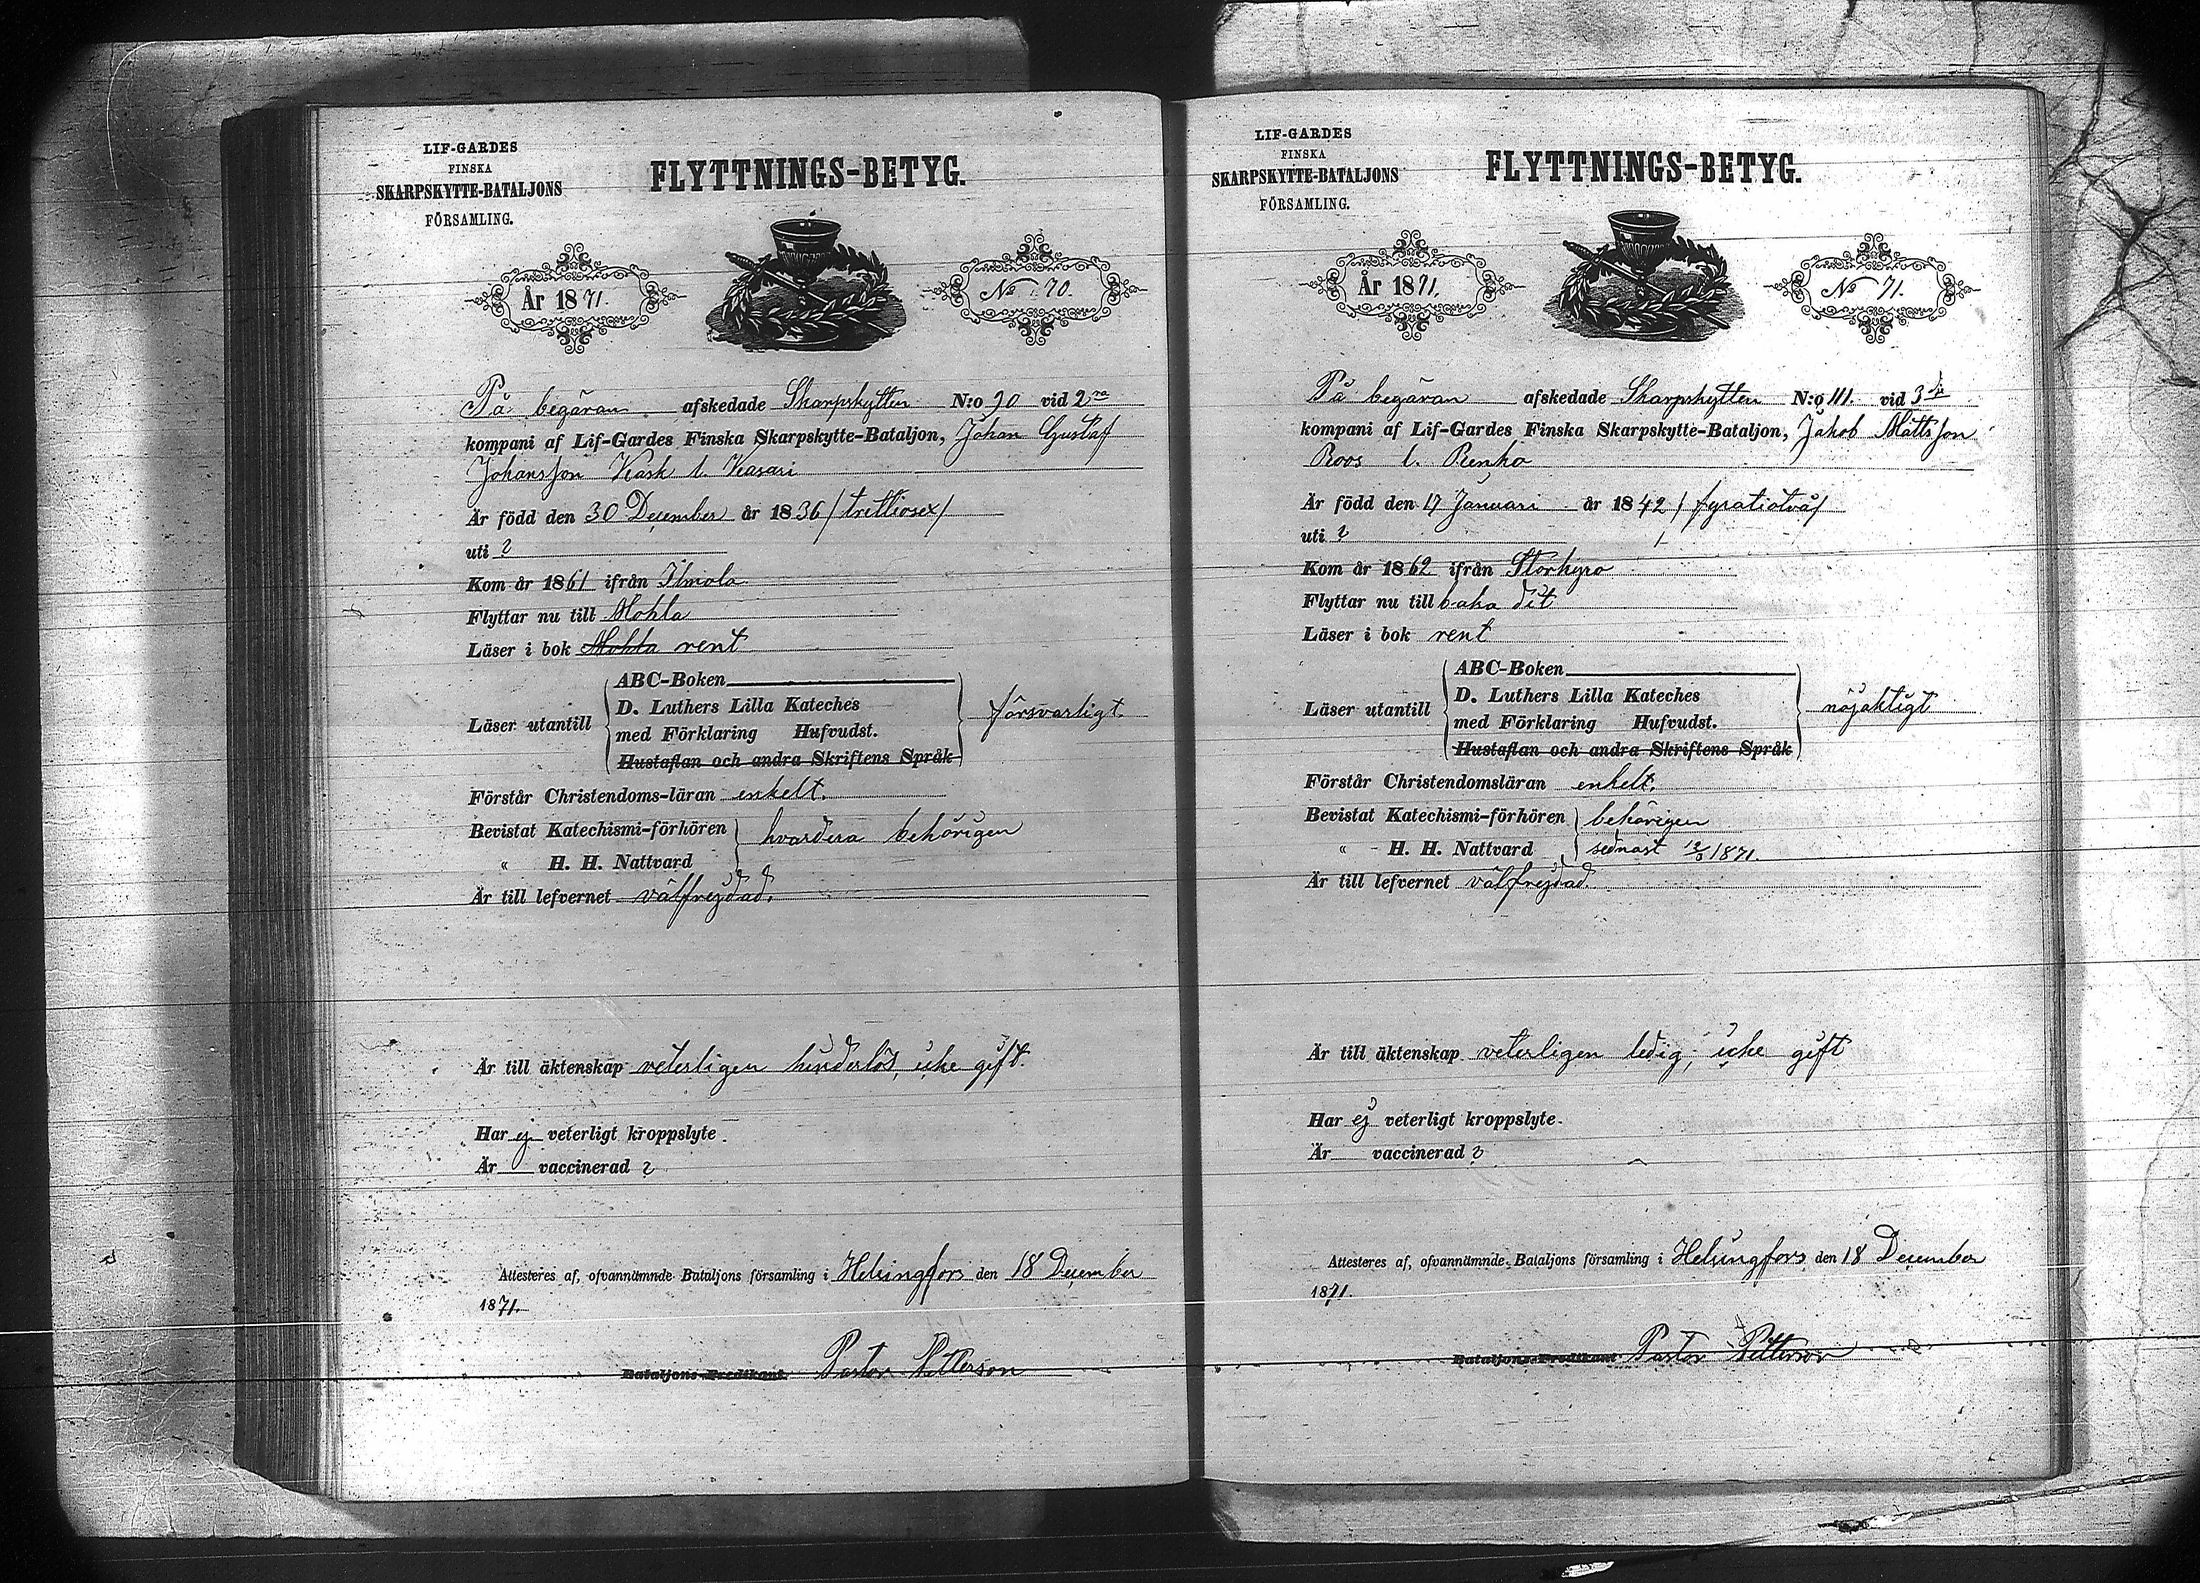 LIF-GARDES
FINSKA
SKARPSKYTTE-BATALJONS
FÖRSAMLING.
FLYTTNINGS-BETYG.
År 1871.
No 70.
På begäran afskedade Skarpskytten N:o 70 vid 2ra
kompani af Lif-Gardes Finska Skarpskytte-Bataljon, Johan Gustaf
Johansson Kask l. Kasari
Är född den 30 December år 1836 / trettiosex /
uti ?
Kom år 1861 ifrån Ilmola
Flyttar nu till Mohla
Läser i bok Mohla rent
Läser utantill
ABC-Boken
D. Luthers Lilla Kateches
med Förklaring Hufvudst.
Hustaflan och andra Skriftens Språk
försvarligt.
Förstår Christendoms-läran enkelt.
Bevistat Katechismi-förhören
" H. H. Nattvard
hvardera behörigen
Är till lefvernet välfrejdad.
Är till äktenskap veterligen hinderlös, icke gift.
Har ej veterligt kroppslyte.
Är vaccinerad ?
Attesteres af, ofvannämnde Bataljons församling i Helsingfors den 18 December
1871.
Bataljons-Predikant. Pastor Petterson
LIF-GARDES
FINSKA
SKARPSKYTTE-BATALJONS
FÖRSAMLING.
FLYTTNINGS-BETYG.
År 1871.
No 71.
På begäran afskedade Skarpskytten N:o 111. vid 3je
kompani af Lif-Gardes Finska Skarpskytte-Bataljon, Jakob Mattsson
Roos l. Renko
Är född den 17 Januari år 1842 / fyratiotvå /
uti ?
Kom år 1862 ifrån Storkyro
Flyttar nu till baka dit
Läser i bok rent
Läser utantill
ABC-Boken
D. Luthers Lilla Kateches
med Förklaring Hufvudst.
Hustaflan och andra Skriftens Språk
nöjaktigt
Förstår Christendomsläran enkelt.
Bevistat Katechismi-förhören
" H. H. Nattvard
behörigen
sednast 1871.
Är till lefvernet välfrejdad.
Är till äktenskap veterligen ledig, icke gift
Har ej veterligt kroppslyte.
Är vaccinerad ?
Attesteres af, ofvannämnde Bataljons församling i Helsingfors den 18 December
1871.
Bataljons-Predikant Pastor Petterson